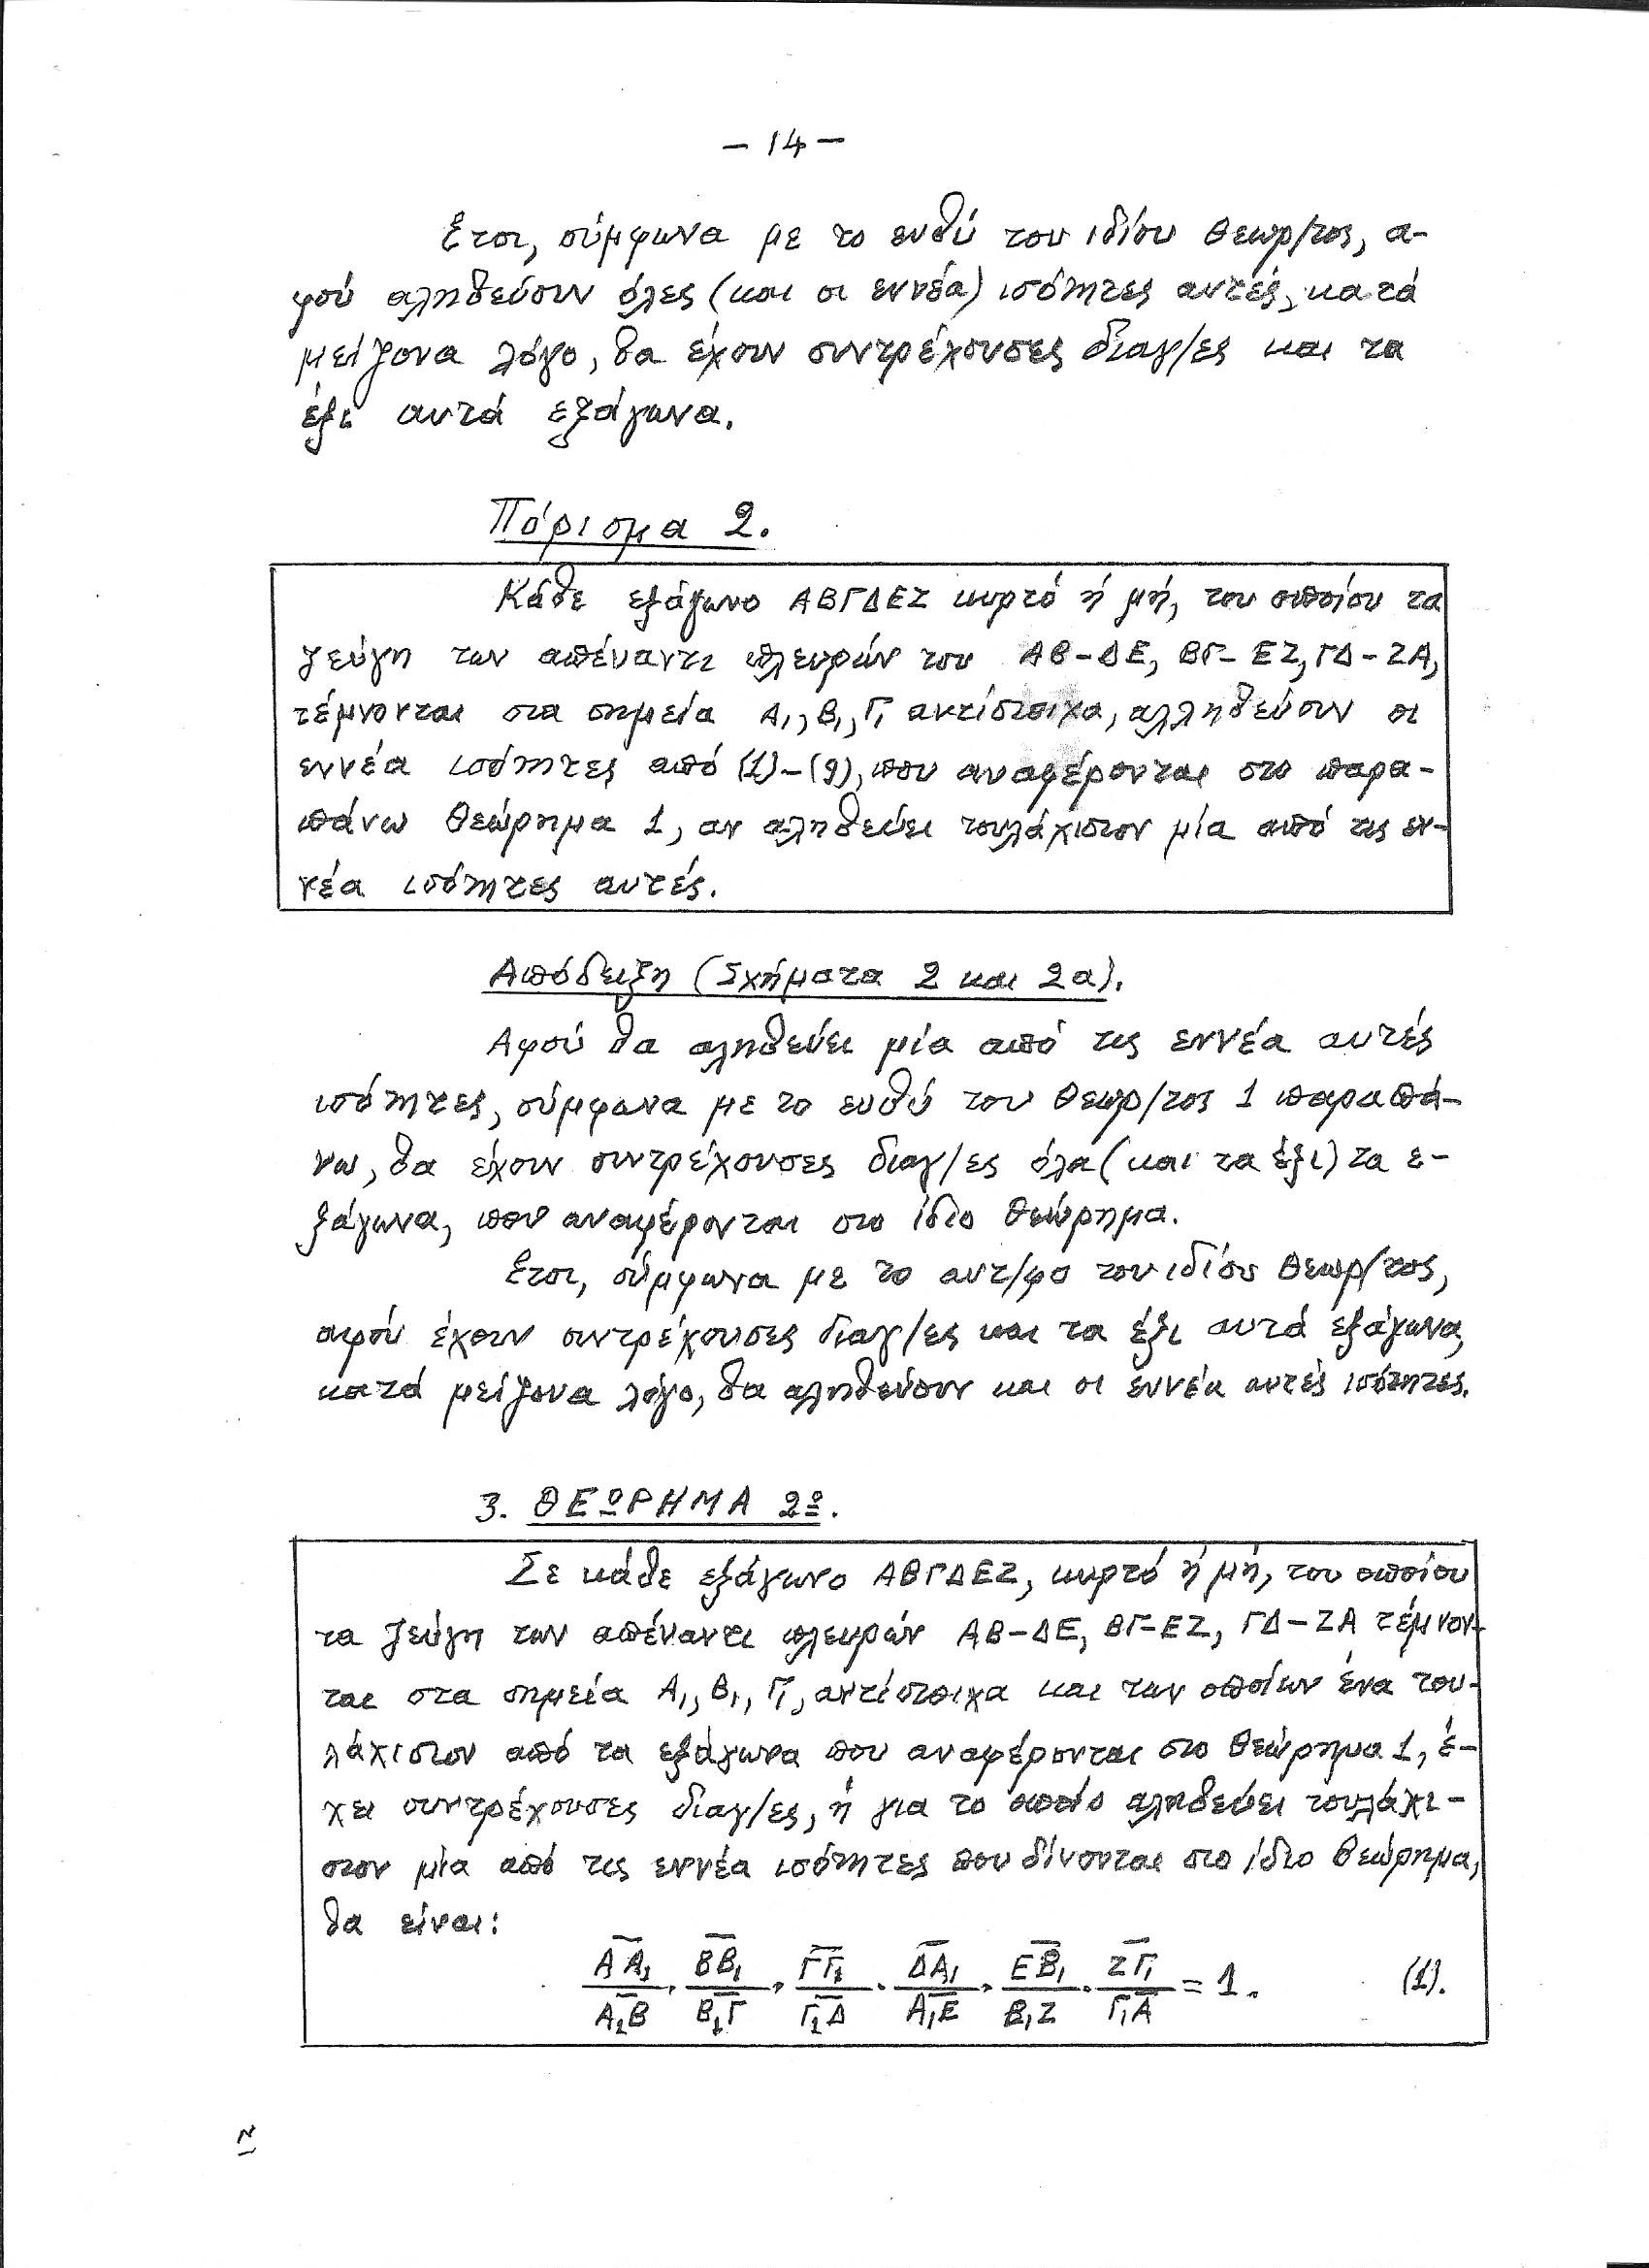 – 14 –
Έτσι, σύμφωνα με το ευθύ του ιδίου θεωρ/τος, α-
φού αληθεύουν όλες (και οι εννέα) ισότητες αυτές, κατά
μείζονα λόγο, θα έχουν συντρέχουσες διαγ/ες και τα
έξι αυτά εξάγωνα.
Πόρισμα 2.
Κάθε εξάγωνο ΑΒΓΔΕΖ κυρτό ή μή, του οποίου τα
ζεύγη των απέναντι πλευρών του ΑΒ–ΔΕ, ΒΓ–ΕΖ, ΓΔ–ΖΑ,
τέμνονται στα σημεία Α₁, Β₁, Γ₁ αντίστοιχα, αλληθεύουν οι
εννέα ισότητες από (1)–(9), που αναφέρονται στο παρα-
πάνω θεώρημα 1, αν αληθεύει τουλάχιστον μία από τις εν-
νέα ισότητες αυτές.
Απόδειξη (Σχήματα 2 και 2α).
Αφού θα αληθεύει μία από τις εννέα αυτές
ισότητες, σύμφωνα με το ευθύ του θεωρ/τος 1 παραπά-
νω, θα έχουν συντρέχουσες διαγ/ες όλα (και τα έξι) τα ε-
ξάγωνα, που αναφέρονται στο ίδιο θεώρημα.
Έτσι, σύμφωνα με το αντ/φο του ιδίου θεωρ/τος,
αφού έχουν συντρέχουσες διαγ/ες και τα έξι αυτά εξάγωνα,
κατά μείζονα λόγο, θα αληθεύουν και οι εννέα αυτές ισότητες.
3. ΘΕΩΡΗΜΑ 2º.
Σε κάθε εξάγωνο ΑΒΓΔΕΖ, κυρτό ή μή, του οποίου
τα ζεύγη των απέναντι πλευρών ΑΒ–ΔΕ, ΒΓ–ΕΖ, ΓΔ–ΖΑ τέμνον-
ται στα σημεία Α₁, Β₁, Γ₁, αντίστοιχα και των οποίων ένα του-
λάχιστον από τα εξάγωνα που αναφέρονται στο θεώρημα 1, έ-
χει συντρέχουσες διαγ/ες, ή για το οποίο αληθεύει τουλάχι-
στον μία από τις εννέα ισότητες που δίνονται στο ίδιο θεώρημα,
θα είναι:
ΑΑ₁/Α₁Β · ΒΒ₁/Β₁Γ · ΓΓ₁/Γ₁Δ · ΔΑ₁/Α₁Ε · ΕΒ₁/Β₁Ζ · ΖΓ₁/Γ₁Α = 1. (1).